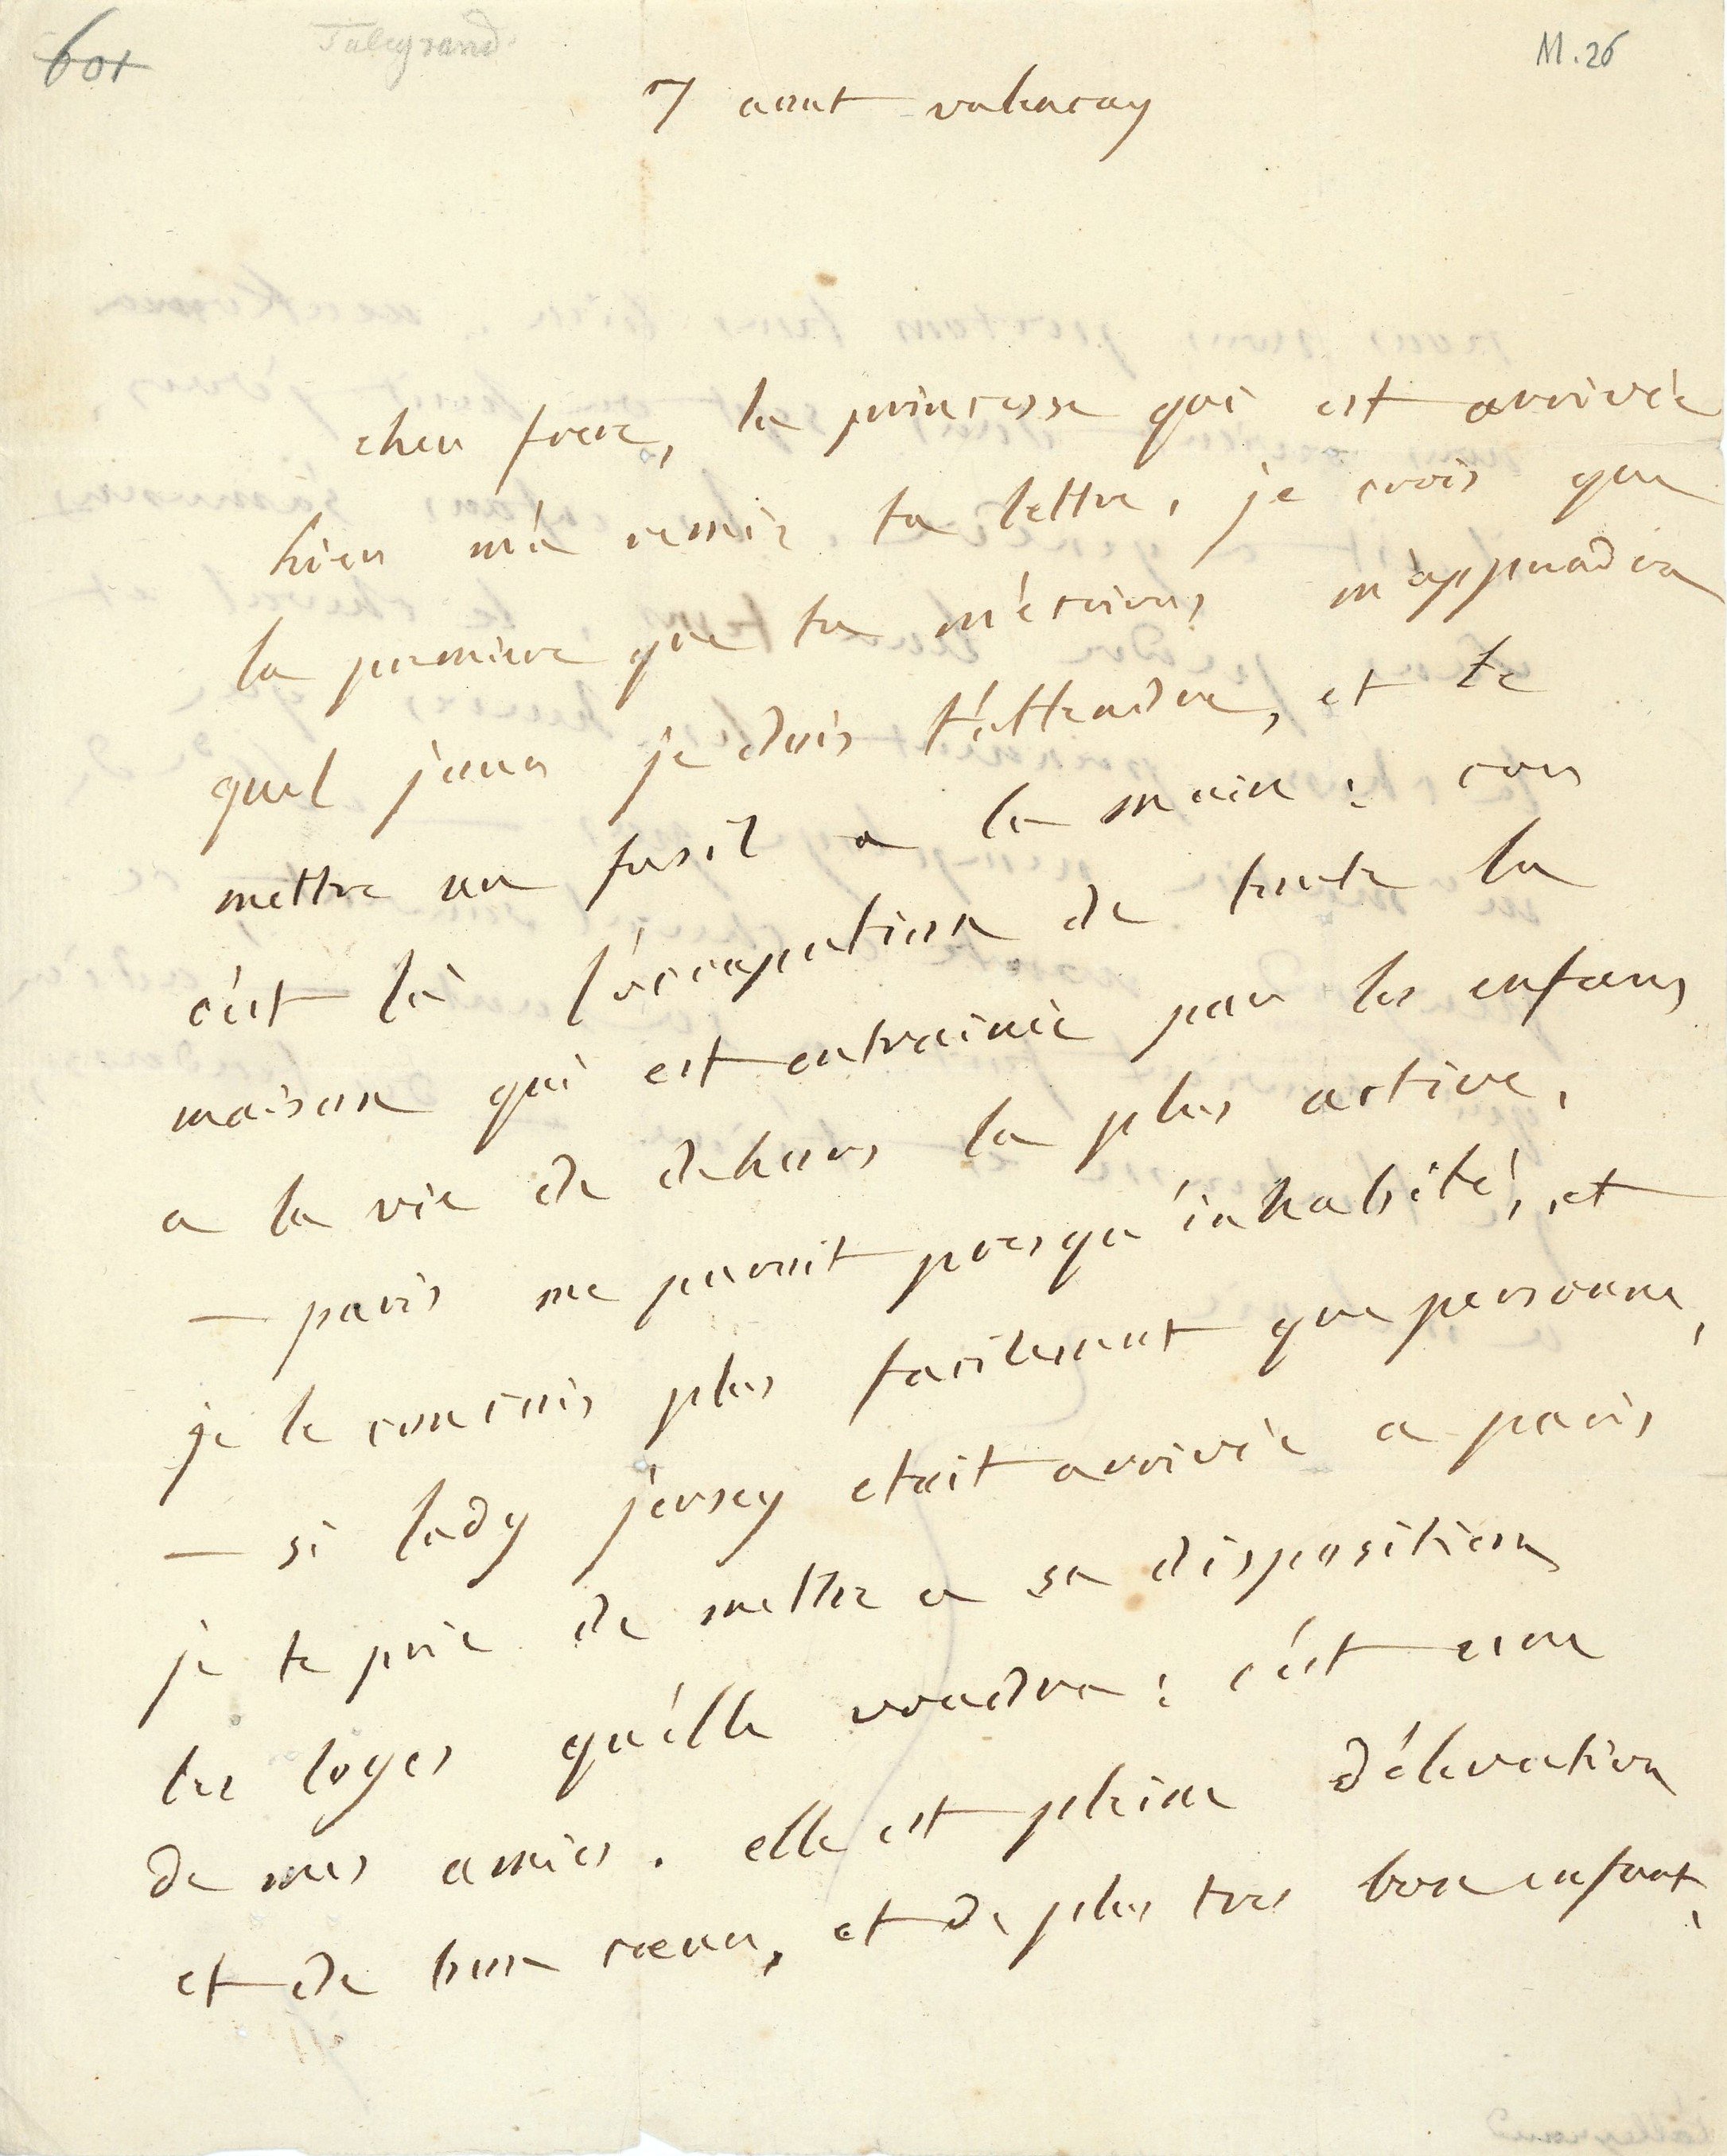 601
Taleyrand
M. 26
7 aout valencay
cher frere, la princesse qui est arrivée
hier m'a remis ta lettre, je crois que
la premiere que tu m'ecriras m'apprendra
quel jour je dois t'attendre, et te
mettre un fusil a la main : car
c'est là l'occupation de toute la
maison qui est entrainée par les enfans
a la vie de dehors la plus active,
— paris me paroit presqu'inhabité, et
je le conçois plus facilement que personne,
— si lady jersey etait arrivée a paris
je te prie de mettre a sa disposition
les loges qu'elle voudra : c'est une
de mes amies. elle est pleine d'élevation
et de bon cœur, et de plus tres bon enfant,